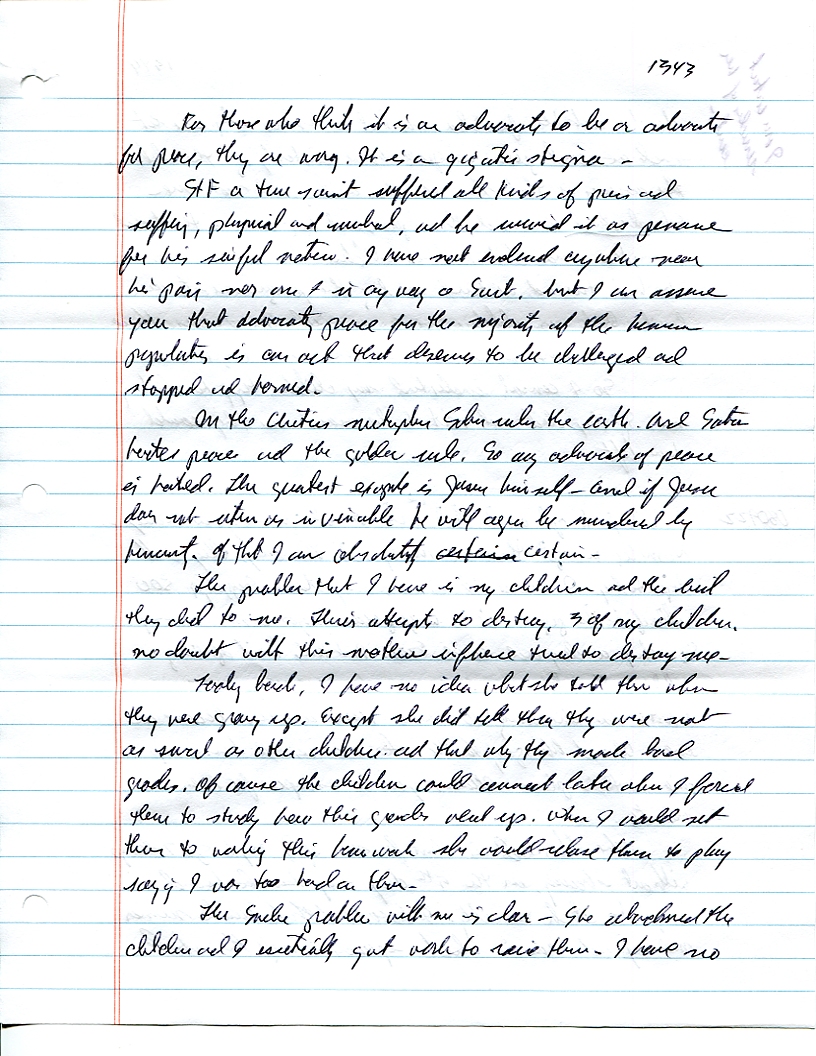 1343
For those who think it is an advocate to be a advocate
for peace, they are wrong. It is a gigantic stigma -
St F a true saint suffered all kinds of pain and
suffering, physical and mental, and he it as penance
for his sinful nature. I have not endured anywhere near
his pain nor am I in any way a Saint. but I can assure
you that advocating peace for the majority of the human
population is an act that deserves to be challenged and
stopped and
In the Christian Satan rules the earth. And Satan
hates peace and the golden rule. So any advocate of peace
is hated. The greatest example is Jesus himself - and if Jesus
does not return as invincible he will again be murdered by
humanity. of that I am absolutely certain certain -
The problem that I have is my children and the
they did to me. attempt to destroy. 3 of my children.
no doubt with this mothers influence tried to destroy me -
Looking back, I have no idea what she told them when
they were growing up. Except she did tell them they were not
as smart as other children. and that why they made bad
grades. Of cause the children could connect later when I forced
them to study how this grades went up. When I would set
them to working this homework she would release them to play
saying I was too hard on them -
The problem with me is clear - She abandoned the
children and I essentially quit work to raise them - I have no